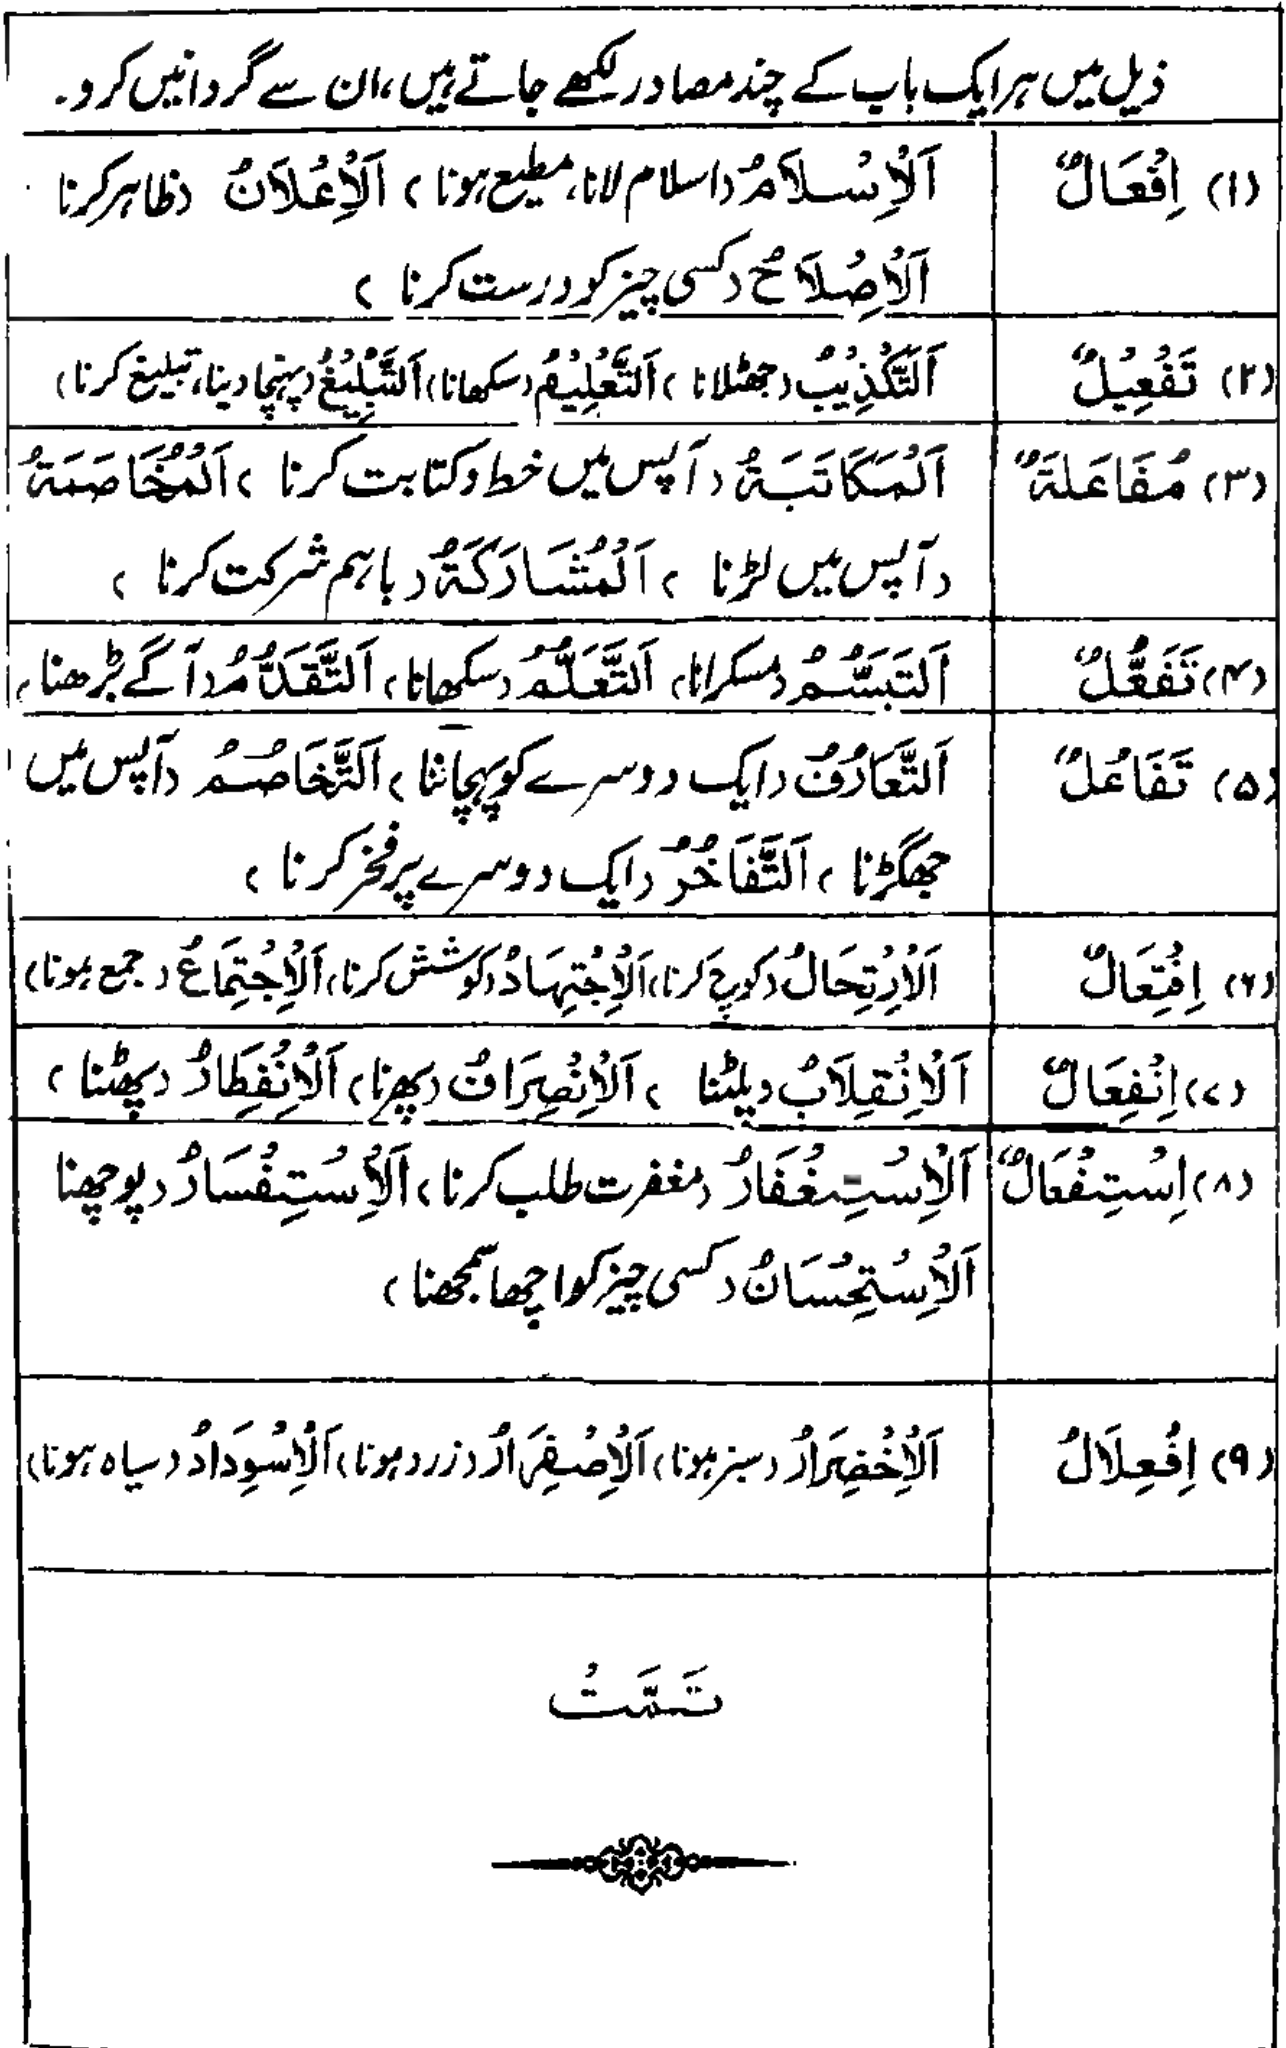 ذیل میں ہر ایک باب کے چند مصادر لکھے جاتے ہیں، ان سے گردانیں کرو۔
(۱) اِفْعَالٌ اَلْاِسْلَامُ (اسلام لانا، مطیع ہونا) اَلْاِعْلَانُ (ظاہر کرنا
اَلْاِصْلَاحُ (کسی چیز کو درست کرنا)
(۲) تَفْعِیْلٌ اَلتَّکْذِیْبُ (جھٹلانا) اَلتَّعْلِیْمُ (سکھانا) اَلتَّبْلِیْغُ (پہنچا دینا، تبلیغ کرنا)
(۳) مُفَاعَلَةٌ اَلْمُکَاتَبَةُ (آپس میں خط و کتابت کرنا) اَلْمُخَاصَمَةُ
(آپس میں لڑنا) اَلْمُشَارَکَةُ (باہم شرکت کرنا)
(۴) تَفَعُّلٌ اَلتَبَسُّمُ (مسکرانا) اَلتَّعَلُّمُ (سکھانا) اَلتَّقَدُّمُ (آگے بڑھنا)
(۵) تَفَاعُلٌ اَلتَّعَارُفُ (ایک دوسرے کو پہچاننا) اَلتَّخَاصُمُ (آپس میں
جھگڑنا) اَلتَّفَاخُرُ (ایک دوسرے پر فخر کرنا)
(۶) اِفْتِعَالٌ اَلْاِرْتِحَالُ (کوچ کرنا) اَلْاِجْتِہَادُ (کوشش کرنا) اَلْاِجْتِمَاعُ (جمع ہونا)
(۷) اِنْفِعَالٌ اَلْاِنْقِلَابُ (پلٹنا) اَلْاِنْصِرَافُ (پھرنا) اَلْاِنْفِطَارُ (پھٹنا)
(۸) اِسْتِفْعَالٌ اَلْاِسْتِغْفَارُ (مغفرت طلب کرنا) اَلْاِسْتِفْسَارُ (پوچھنا
اَلْاِسْتِحْسَانُ (کسی چیز کو اچھا سمجھنا)
(۹) اِفْعِلَالٌ اَلْاِخْضِرَارُ (سبز ہونا) اَلْاِصْفِرَارُ (زرد ہونا) اَلْاِسْوِدَادُ (سیاہ ہونا)
تَمَّتْ